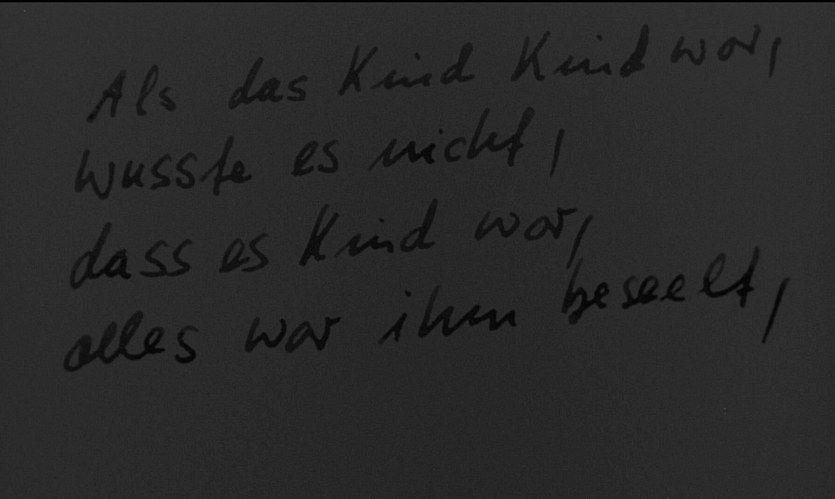 Als das Kind Kind war,
wusste es nicht,
dass es Kind war,
alles war ihm beseelt,